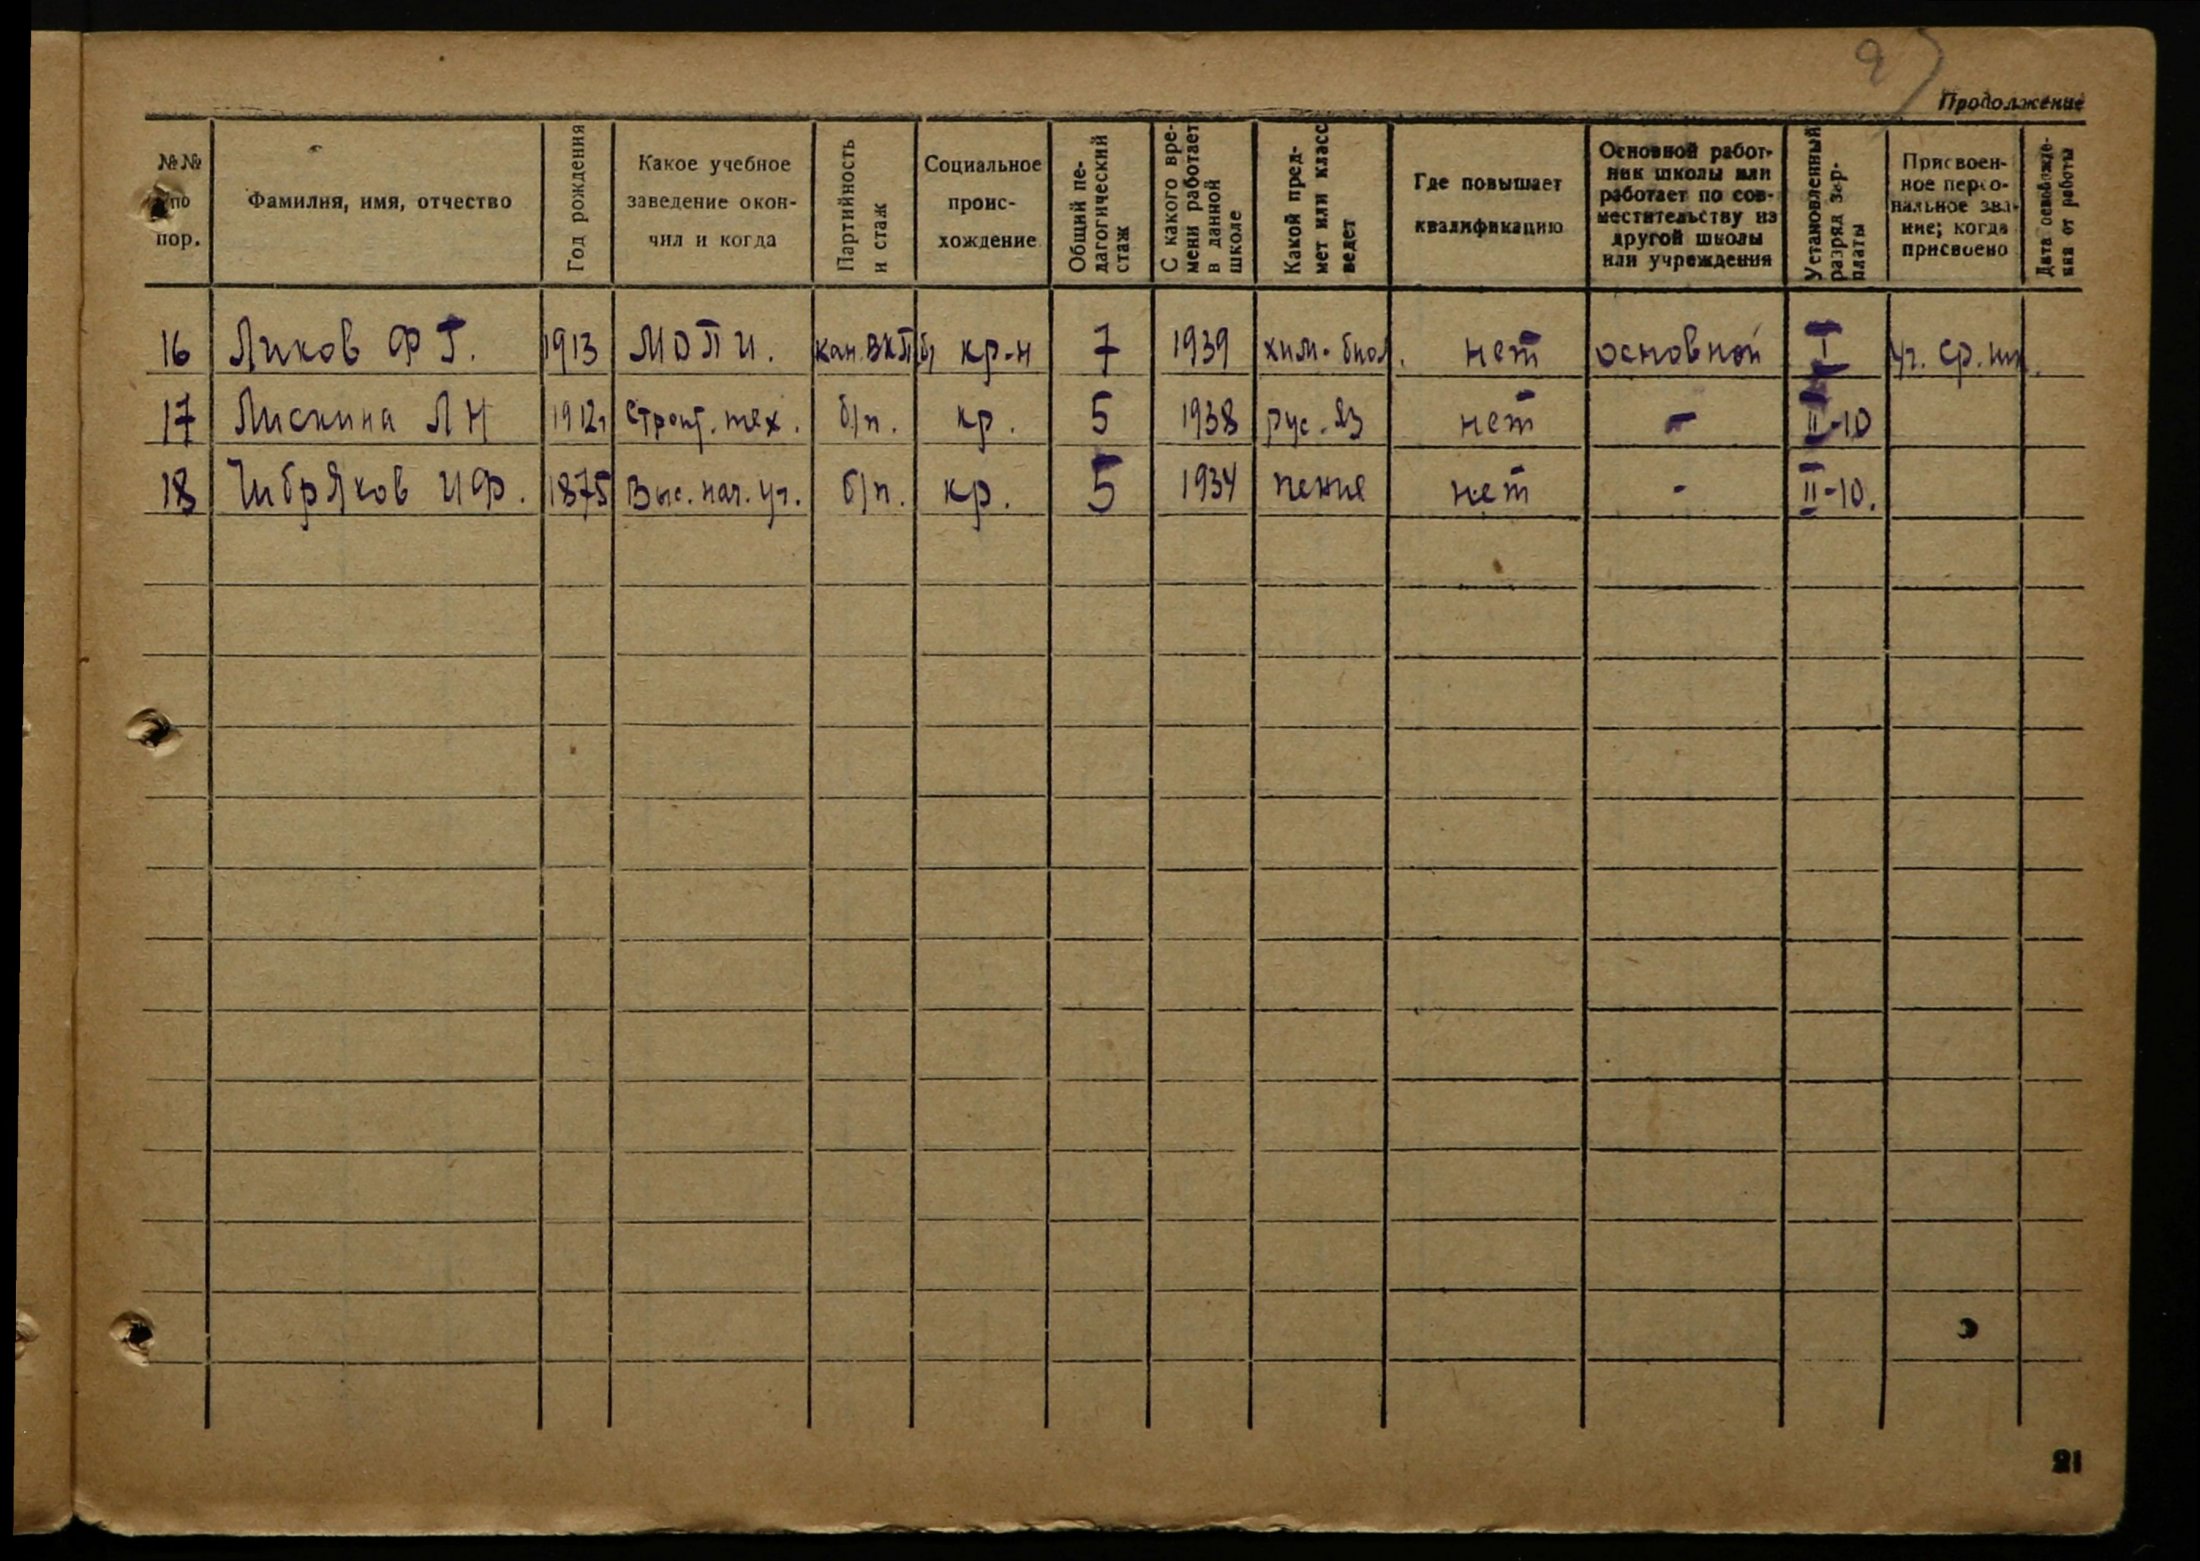 Продолжение
№№ по пор. Фамилия, имя, отчество Год рождения Какое учебное заведение окончил и когда Партийность и стаж Социальное происхождение Общий педагогический стаж С какого времени работает в данной школе Какой предмет или класс ведет Где повышает квалификацию Основной работник школы или работает по совместительству из другой школы или учреждения Установленный разряд зарплаты Присвоенное персональное звание; когда присвоено Дата освобождения от работы
16 Ликов Ф Г. 1913 МОПИ. кан. ВКПб, кр-н 7 1939 хим. биол. нет основной I уч. ср. шк.
17 Лискина Л Н 1912 строит. тех. б/п. кр. 5 1938 рус. яз нет - II-10
18 Чибряков И Ф. 1875 Выс. нач. уч. б/п. кр. 5 1934 пения нет - II-10.
21